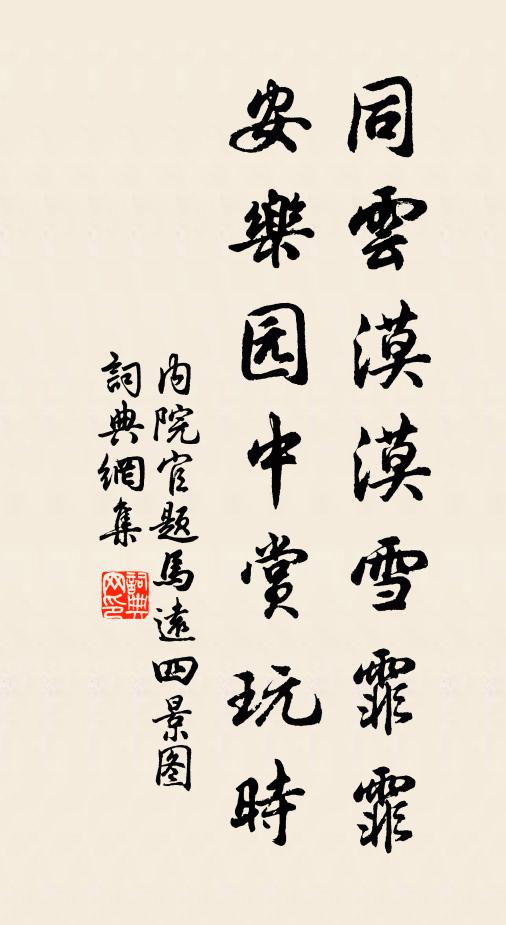 同雲漠漠雪霏霏
安樂园中賞玩時
内院官题馬遠四景图
詞典網集
詞典网印